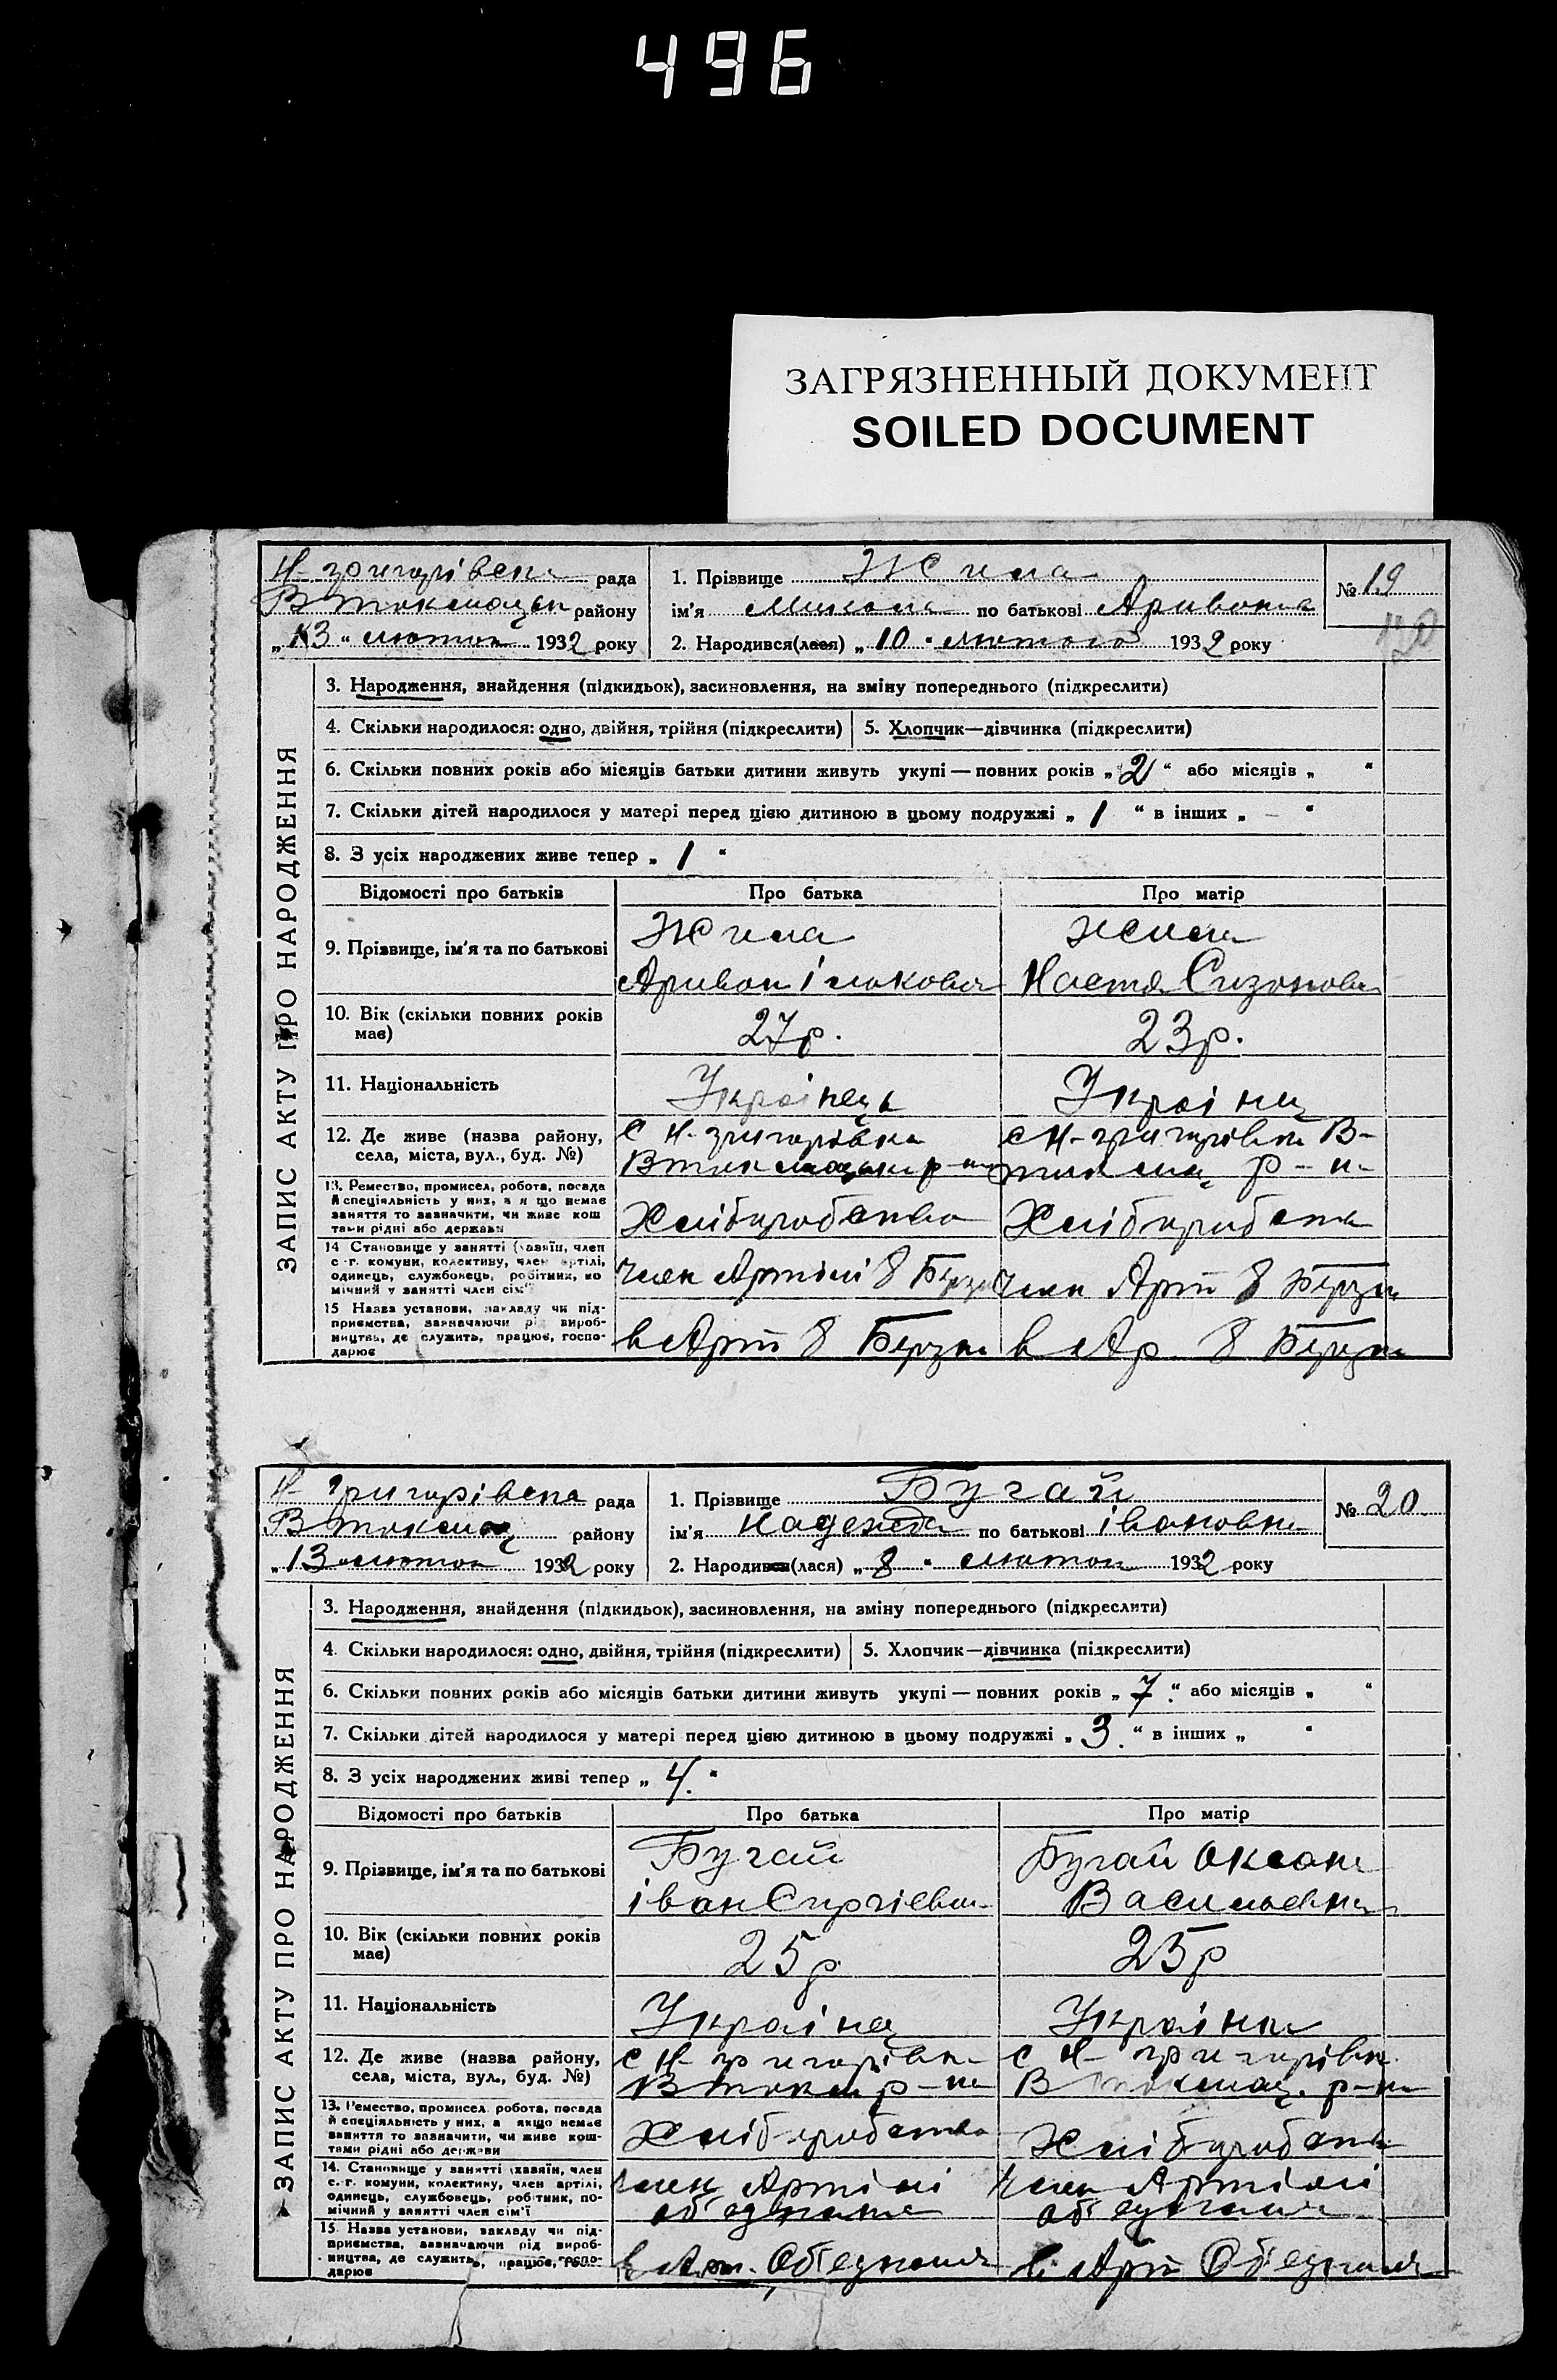 496
ЗАГРЯЗНЕННЫЙ ДОКУМЕНТ
SOILED DOCUMENT
ЗАПИС АКТУ ПРО НАРОДЖЕННЯ
Н-григорівська рада
В Токмацьк району
„13“ лютого 1932 року
1. Прізвище Жила
№ 19
ім'я Микола по батькові
120
2. Народився(лася) „10“ лютого 1932 року
3. Народження, знайдення (підкидьок), засиновлення, на зміну попереднього (підкреслити)
4. Скільки народилося: одно, двійня, трійня (підкреслити) 5. Хлопчик—дівчинка (підкреслити)
6. Скільки повних років або місяців батьки дитини живуть укупі — повних років „2“ або місяців „ “
7. Скільки дітей народилося у матері перед цією дитиною в цьому подружжі „1“ в інших „ – “
8. З усіх народжених живе тепер „1“
Відомості про батьків Про батька Про матір
9. Прізвище, ім'я та по батькові Жила Жила
Настя Сизонова
10. Вік (скільки повних років має) 27р. 23р.
11. Національність Українець Україн
12. Де живе (назва району, села, міста, вул., буд. №) с Н-григорівка с Н-григорівка В-
13. Ремество, промисел, робота, посада й спеціяльність у них, а я що немає заняття то зазначити, чи живе кош тами рідні або держави Хліборобство Хліборобств
14 Становище у занятті (хавяїн, член с.-г. комуни, колективу, член артілі, одинець, службовець, робітник, помічний у занятті член сім'ї член Артілі 8 Берзн член Арт 8 Берзн
15 Назва установи, закладу чи підприємства, зазначаючи рід виробництва, де служить, працює, господарює в Арт 8 Берзн в Ар 8 Берзн
ЗАПИС АКТУ ПРО НАРОДЖЕННЯ
Н-григорівська рада
В Токмац району
„13“ лютого 1932 року
1. Прізвище Бугай
№ 20
ім'я Надежда по батькові івановна
2. Народився(лася) „8“ лютого 1932 року
3. Народження, знайдення (підкидьок), засиновлення, на зміну попереднього (підкреслити)
4. Скільки народилося: одно, двійня, трійня (підкреслити) 5. Хлопчик—дівчинка (підкреслити)
6. Скільки повних років або місяців батьки дитини живуть укупі — повних років „7“ або місяців „ “
7. Скільки дітей народилося у матері перед цією дитиною в цьому подружжі „3“ в інших „ “
8. З усіх народжених живі тепер „4“
Відомості про батьків Про батька Про матір
9. Прізвище, ім'я та по батькові Бугай Бугай Оксана
іван Сиргієвич Васильевна
10. Вік (скільки повних років має) 25р 25р
11. Національність Українец Українка
12. Де живе (назва району, села, міста, вул., буд. №) с Н-григорівк с Н-григорівк
В Токм р-н В Токмац. р-н
13. Ремество, промисел робота, посада й спеціяльність у них, а якщо немає заняття то зазначити, чи живе коштами рідні або держави Хліборобство Хліборобств
14. Становище у занятті (хазяїн, член с.-г. комуни, колективу, член артілі, одинець, службовець, робітник, помічний у занятті член сім'ї член Артілі член Артілі
15. Назва установи, закладу чи підприємства, зазначаючи рід виробництва, де служить, працює, господарює в Арт. Об'єднання в Арт Об'єднання